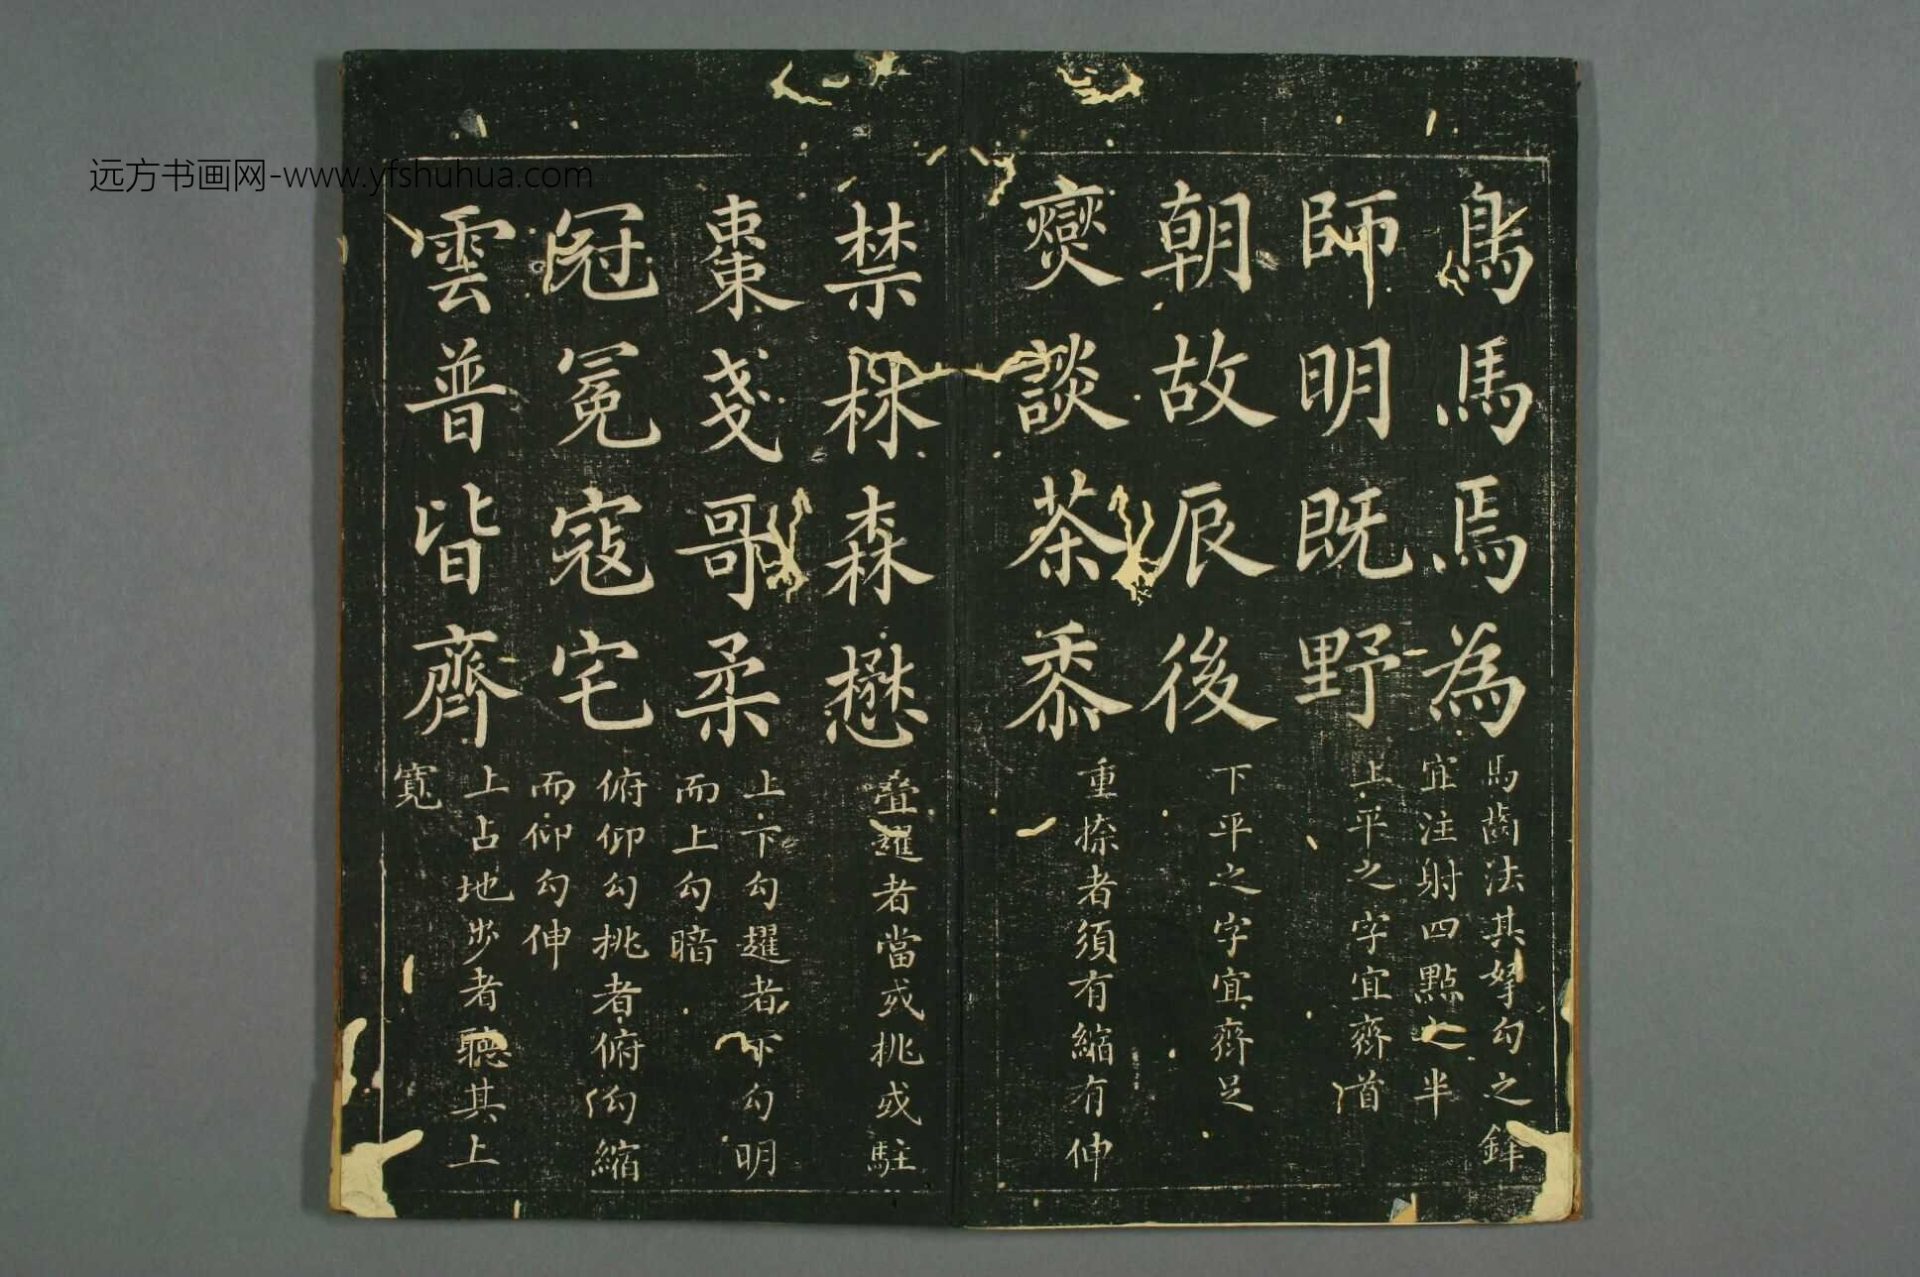 远方书画网-www.yfshuhua.com
鳥馬焉為
馬齒法其孥勾之鋒
宜注射四點之半
師明既野
上平之字宜齊首
朝故辰後
下平之字宜齊足
爕談茶黍
重捺者須有縮有伸
禁森懋
疊趯者當或挑或駐
棗戔哥柔
上下勾趯者下勾明
而上勾暗
冠冕寇宅
俯仰勾挑者俯勾縮
而仰勾伸
雲普皆齊
上占地步者聽其上
寬